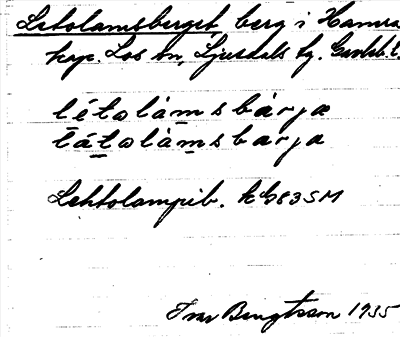 Letolamsberget, berg i Hamra
kap. Los sn, Ljusdals tg. Gävleb. l.
lé́tolàmsbàrjæ
tátolàmsbarja
Lehtolampib. k G83SM
Ivar Bengtsson 1935